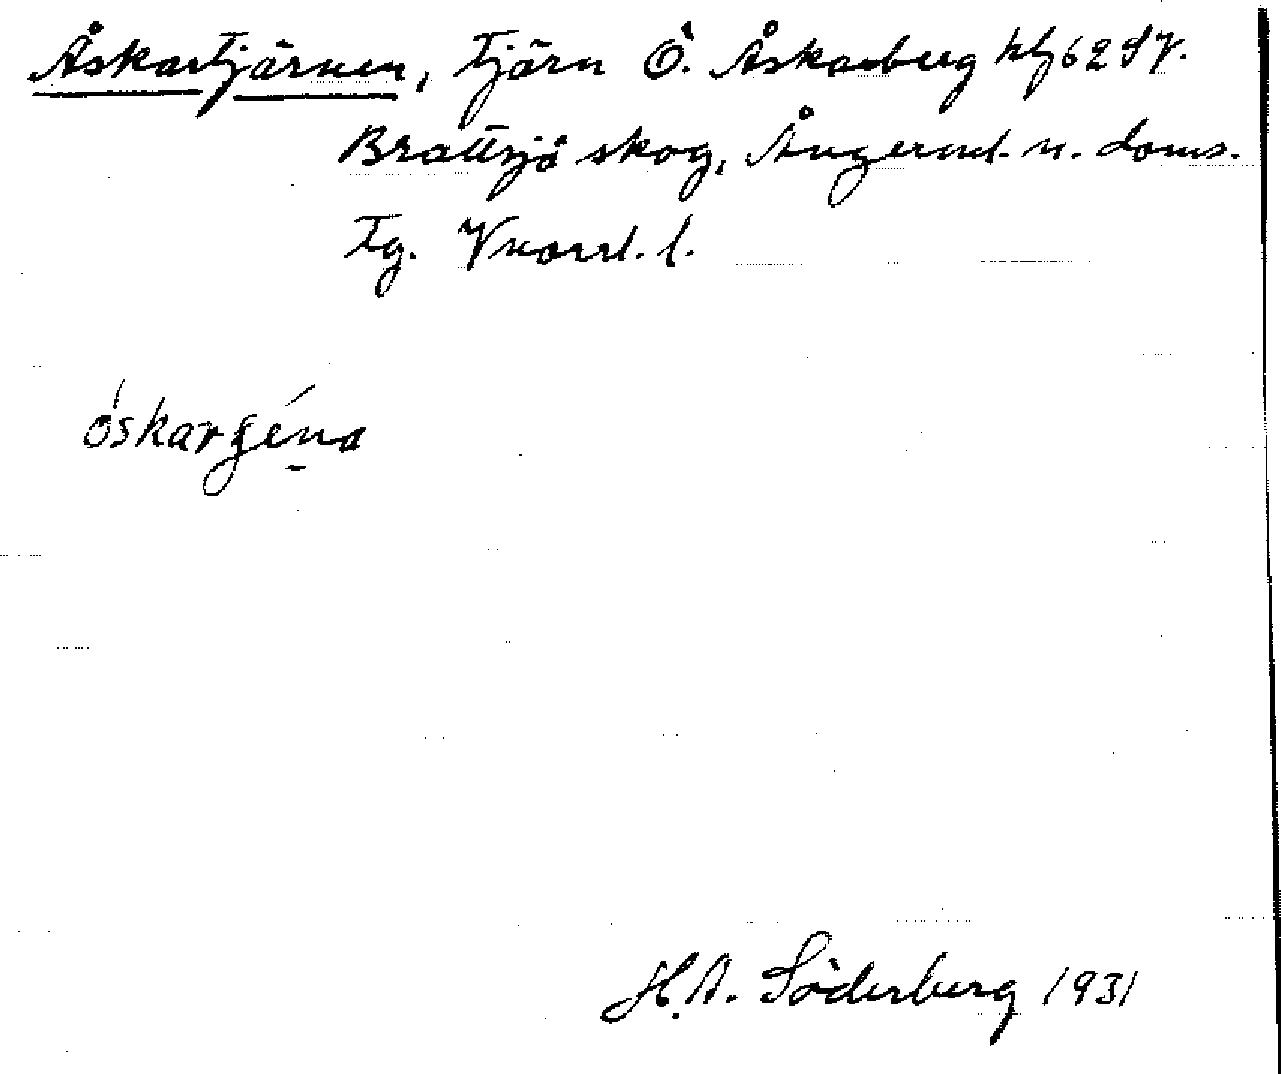 Åskartjärnen, tjärn Ö. Åskarberg hlj 62 SV.
Brattsjö skog, Ångerml. n. doms.
tg. Vnorrl. l.
óskarʃéna
H.A. Söderberg 1931